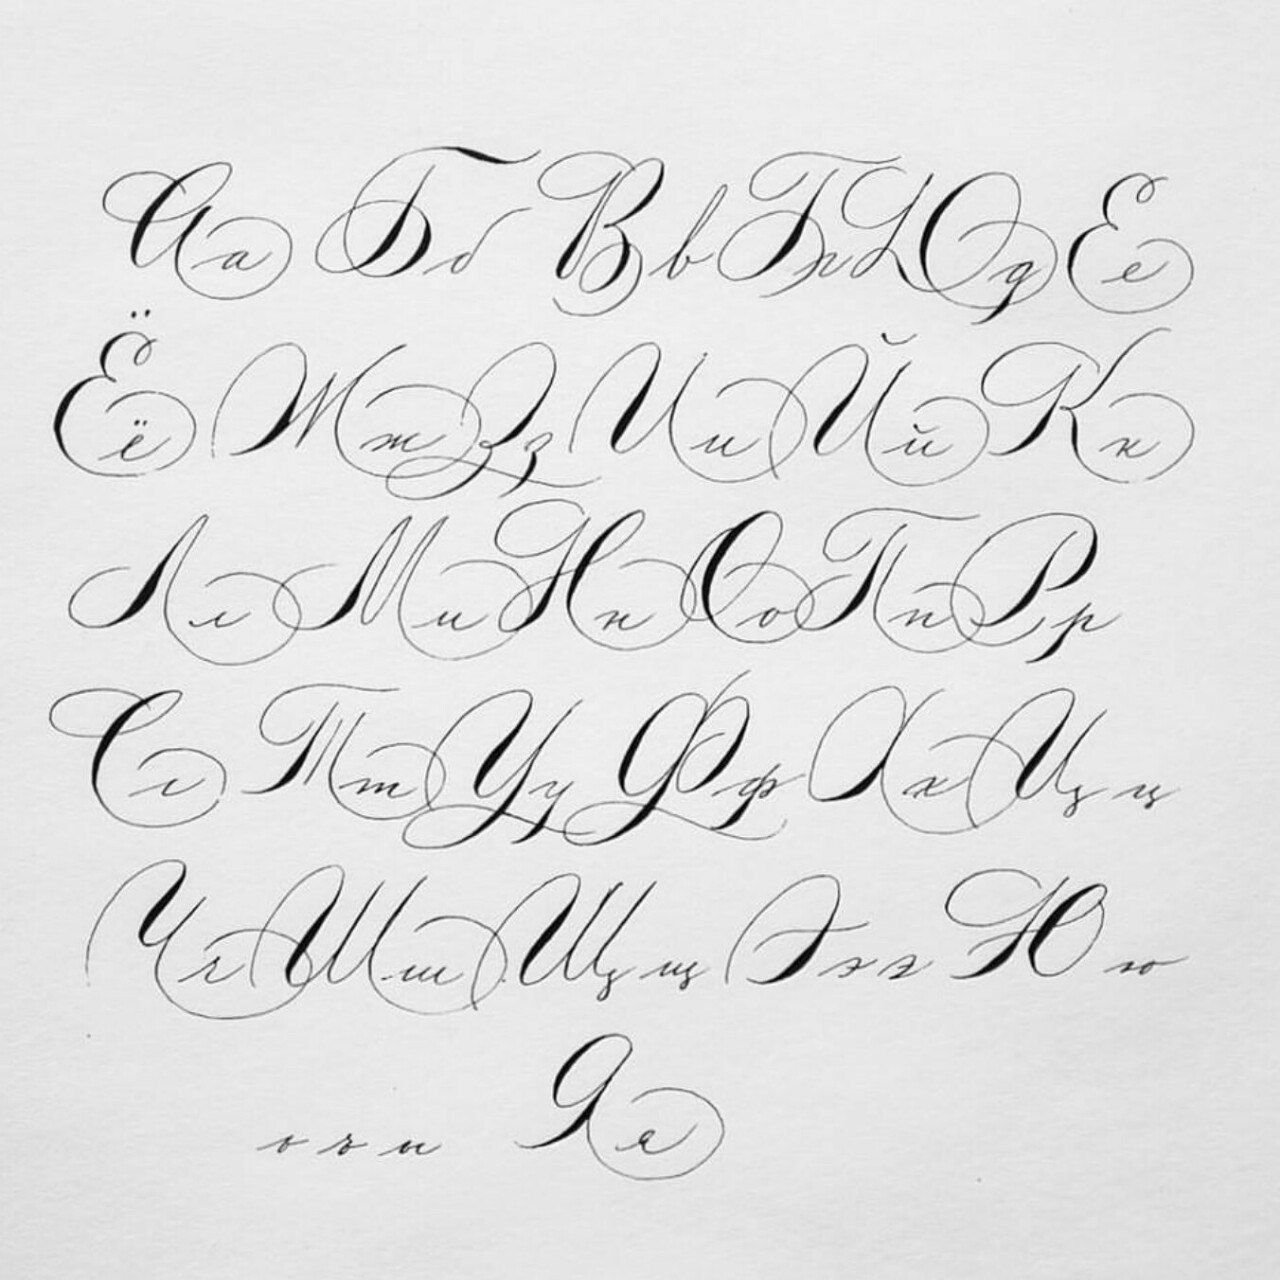 Аа Бб Вв Гг Дд Ее
Ёё Жж Зз Ии Йй Кк
Лл Мм Нн Оо Пп Рр
Сс Тт Уу Фф Хх Цц ц
Чч Шш Щщ щ Ээ э Юю
ь ъ ы Яя